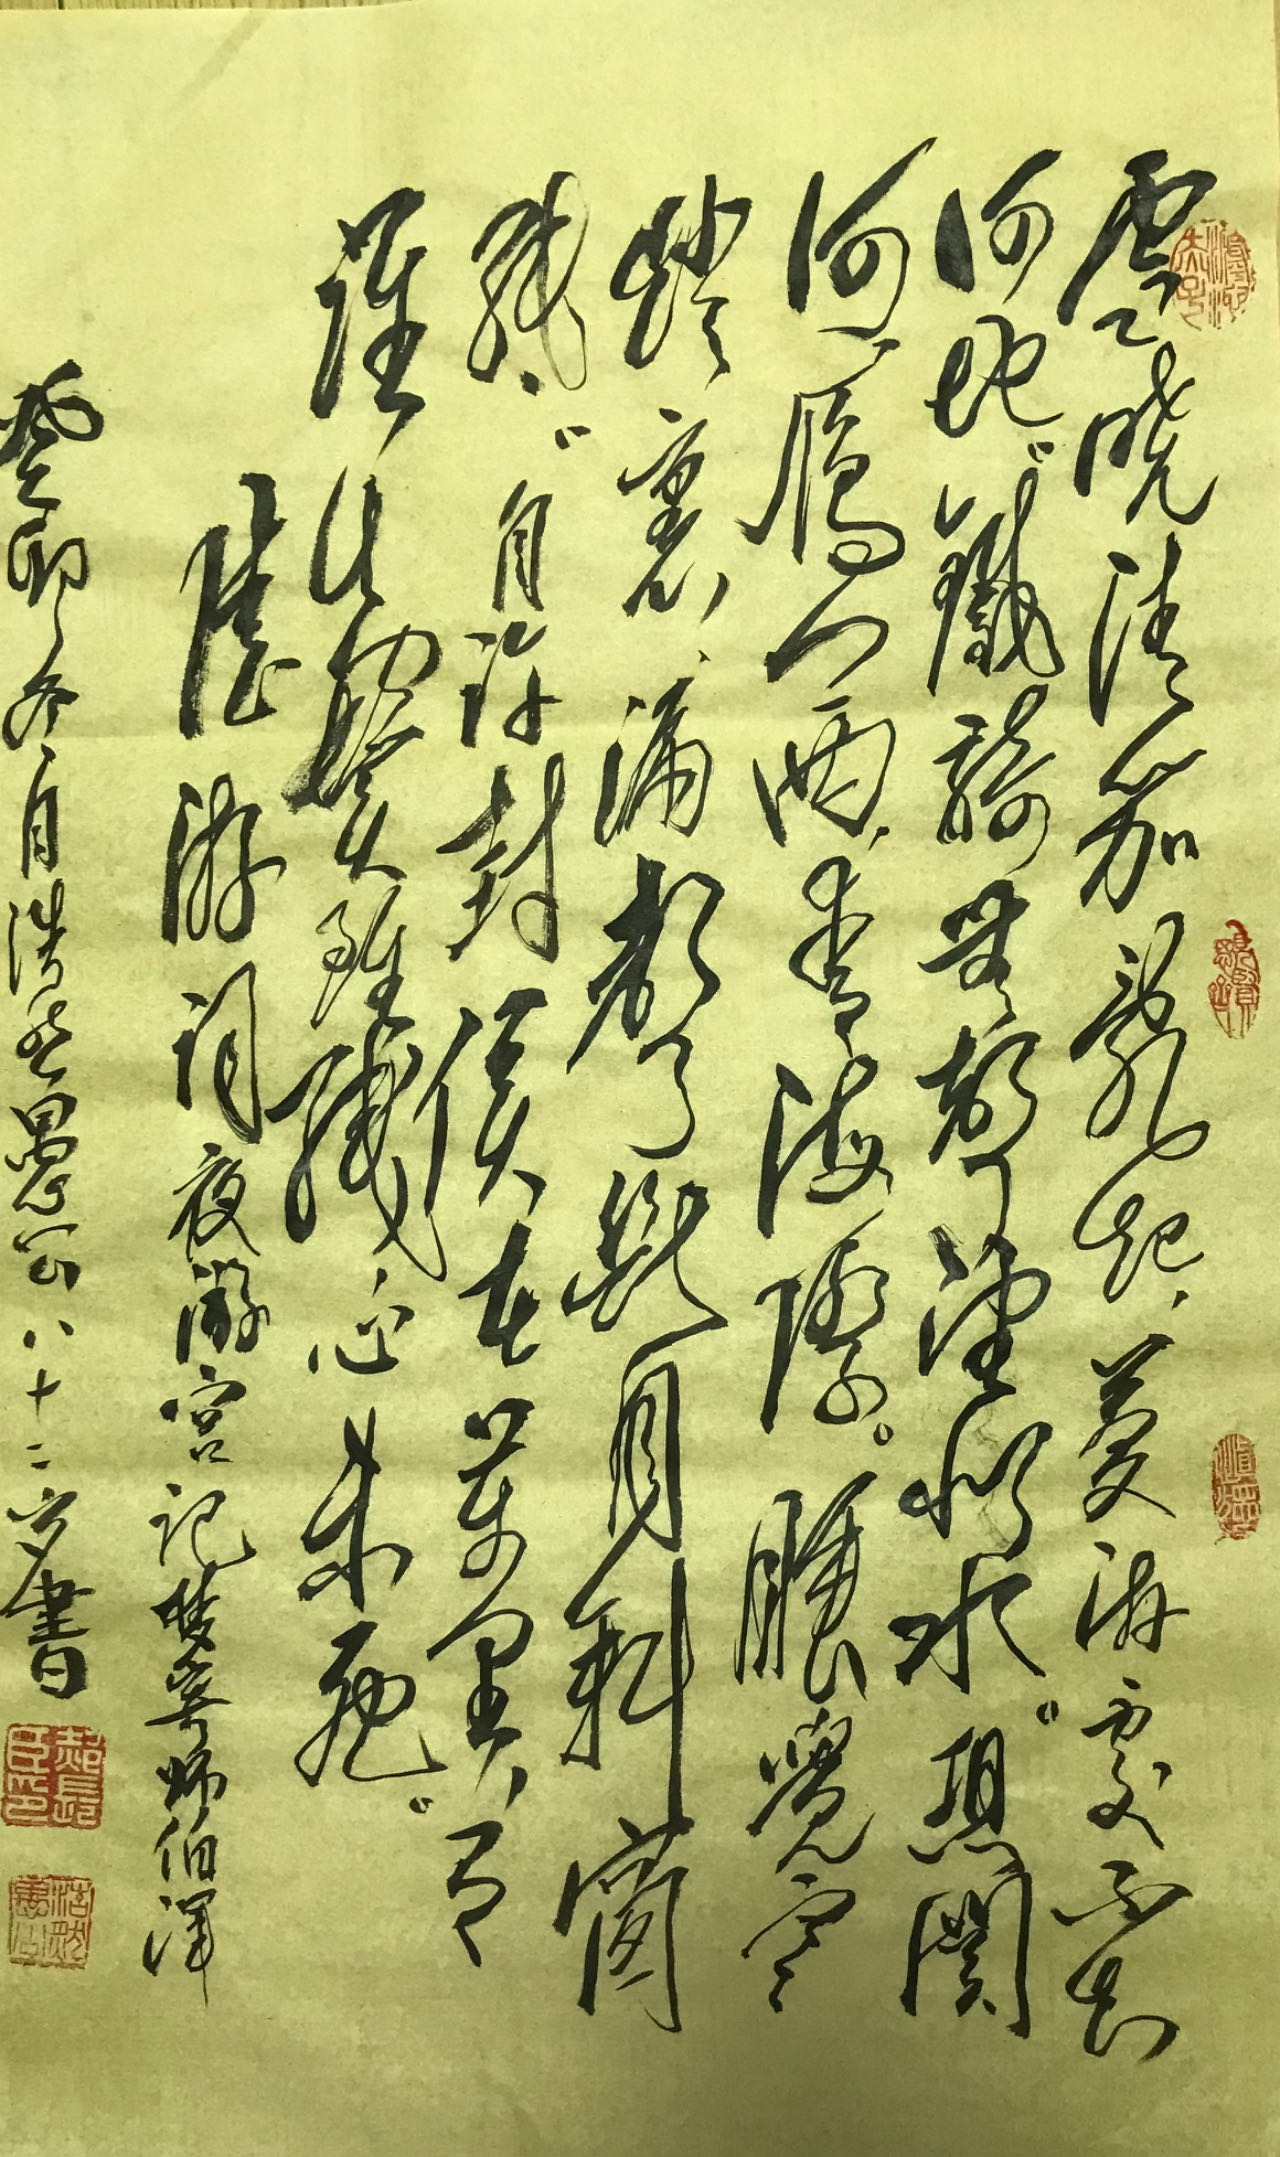 雪晓清笳亂起，夢游處不知
何地。鐵騎無聲望似水。想關
河，雁门西，青海際。睡覺寒
燈裏，漏聲斷月斜窗
紙。自许封侯在萬里，有
誰知鬢雖殘心未死。
陸游词夜游宫记梦寄师伯渾
癸卯冬月浩然愚公八十二岁書